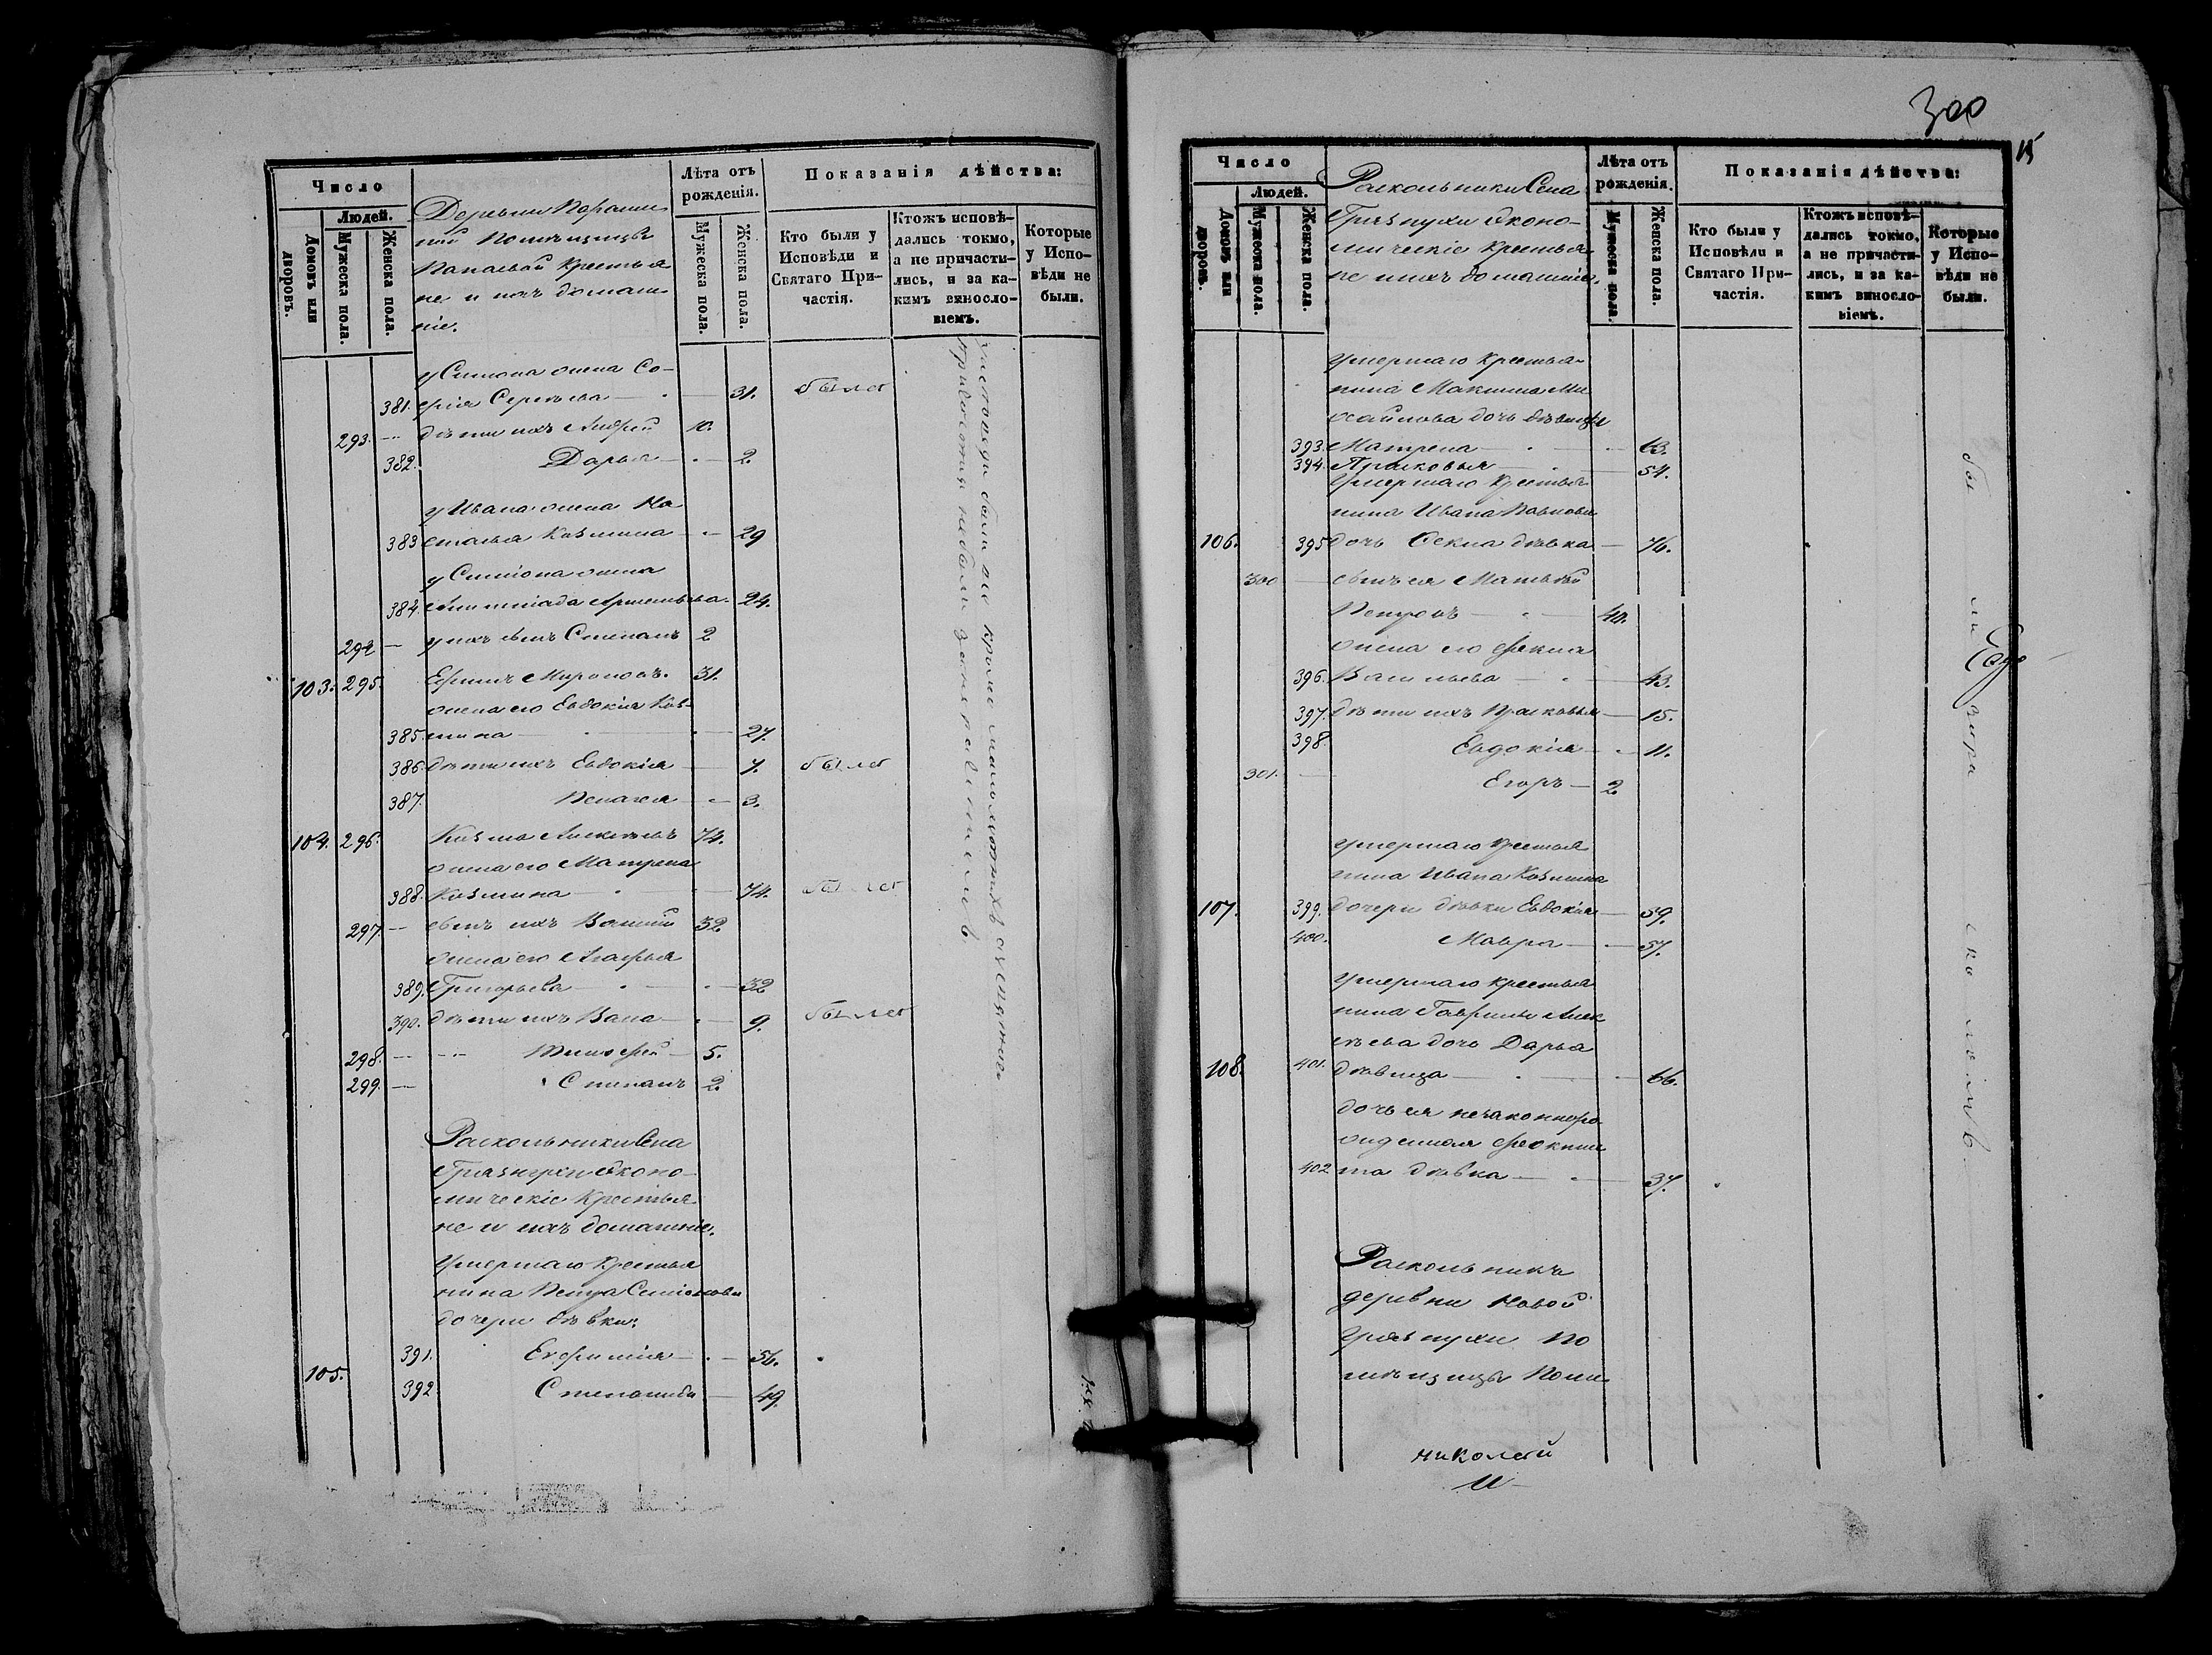 Число
Людей.
Домовъ или дворовъ.
Мужеска пола.
Женска пола.
Деревни
помѣщицы
крестья
не и ихъ домаш
ніе.
Лѣта отъ рожденія.
Мужеска пола.
Женска пола.
Показанія дѣйства:
Кто были у Исповѣди и Святаго При-
частія.
Ктожъ исповѣ-
дались токмо,
а не причасти-
лись, и за ка-
кимъ винносло-
віемъ.
Которые
у Испо-
вѣди не
были.
у Симона жена Со-
381. фія Сергѣева — 31. была
293. — дѣти ихъ Андрей 10.
382. Дарья — 2.
у Ивана жена На
383 сталья Козмина — 29
у Симиона жена
384. Артемьева. 24.
294 — у нихъ сынъ Степанъ 2
103. 295. Ефимъ Мироновъ. 31.
жена его Евдокія Коз-
385. мина — 27.
386. дѣти ихъ Евдокія — 7. была
387. Пелагея — 3.
104. 296. Козма Алексѣевъ 74.
жена его Матрена
388. Козмина — 74. была
297 — сынъ ихъ Василій 32
жена его Агафья
389. Григорьева — 32
390. дѣти ихъ — 9. была
298. — Тимофей — 5.
299. — Степанъ 2.
Раскольники Села
Грязнухи Эконо-
мическіе крестья
не и ихъ домашніе.
Умершаго крестья
нина Петра Симіонова
дочери дѣвки:
391. Евфимія — 56.
105.
392. Степанида — 49.
300
15
Число
Людей.
Домовъ или дворовъ.
Мужеска пола.
Женска пола.
Раскольники Села
Грязнухи Эконо-
мическіе крестья
не ихъ домашніе.
Лѣта отъ рожденія.
Мужеска пола.
Женска пола.
Показанія дѣйства:
Кто были у
Исповѣди и
Святаго При-
частія.
Ктожъ исповѣ-
дались токмо,
а не причасти-
лись, и за ка-
кимъ винносло-
віемъ.
Которые
у Испо-
вѣди не
были.
Умершаго крестья-
нина Максима Ми
хайлова дочь дѣвицы
393. Матрена — 63.
394. Прасковья — 54.
Умершаго крестья
нина Ивана Павлова
106. 395 дочь Фекла дѣвка — 76.
300 — сынъ ея Матвѣй
Петровъ — 40.
жена его Фекла
396. Васильева — 43.
397. дѣти ихъ Прасковья — 15.
398. Евдокія — 11.
301. — Егоръ — 2
умершаго крестья
нина Ивана Козмина
107. 399. дочери дѣвки Евдокія — 59.
400. Мавра — 57.
умершаго крестья
нина Гаврилы Алек
сѣева дочь Дарья
108. 401. дѣвица — 66.
дочь ея незаконноро
жденная Феокти
402 ста дѣвка — 37.
Раскольникъ
деревни Новой
Грязнухи по
мѣщицы
Николай